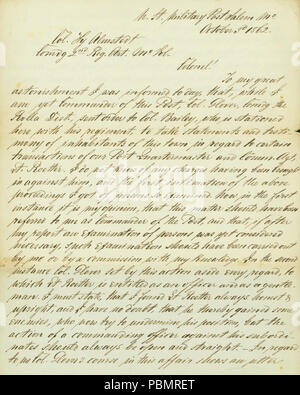 U. St. Military Post Salem Mo.
October 5th 1862.
Col. Hy Almstedt
comdg 2nd Reg. Art. Mo. Vol.
Colonel!
To my great
astonishment I was informed to day, that, while I
am yet Commander of this Post, Col. Glover, comdg the
Rolla Distr., sent order to Col. Bailey, who is stationed
here with his regiment, to take statements and testi-
mony of inhabitants of this town, in regard to certain
transactions of our Post Quartermaster and Commis.
Lt. Koelter. I do not know of any charges having been brought
in against him, and the first information of the above
proceedings I got of persons, examined. Now in the first
instance it is my opinion, that the matter should have been
referred to me as Commander of the Post, and that, if after
my report an examination of persons was yet considered
necessary, such examination should have been carried out
by me or by a commission with my knowledge. In the second
instance Col. Glover set by this action aside every regard, to
which Lt. Koelter is entitled as an officer and as a gentle-
man. I must state, that I found Lt. Koelter always honest &
upright, and I have no doubt, that he thereby gained some
enemies, who now try to undermine his position, but the
action of a commanding officer against his subordi-
nates should always be open and straight. In regard
to me Col. Glover's course in this affair shows an utter
alamy
Image ID: PBMRET
www.alamy.com